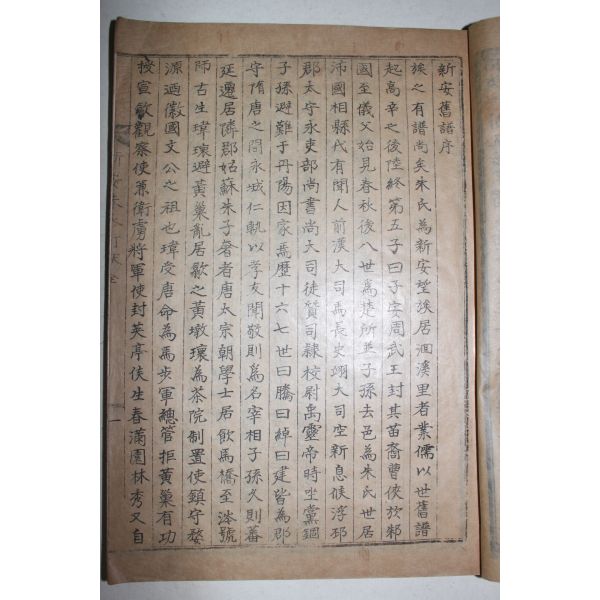 新安舊譜序
族之有譜尚矣朱氏為新安望族居洄溪里者業儒以世舊譜
起高辛之後陸終第五子曰子安周武王封其苗裔曹俠於邾
國至儀父始見春秋後八世為楚所並子孫去邑為朱氏世居
沛國相縣代有聞人前漢大司馬長史翊大司空新息侯浮邳
郡太守永吏部尚書尚大司徒賛司隸校尉禹靈帝時坐黨錮
子孫避難于丹陽因家焉歷十六七世曰騰曰綽曰建皆為郡
守隋唐之間永城仁軌以孝友聞敬則為名宰相子孫久則蕃
延邊居儕郡姑蘇朱子奢者唐太宗朝學士居飲馬橋至滂號
師古生瑋瓌避黃巢亂居歙之黃墩瓌為茶院制置使鎮守婺
源迺徽國文公之祖也瑋受唐命為馬步軍總管拒黃巢有功
授宣歙觀察使兼衛虜將軍使封英亭侯生春滿園林秀又自
新安朱
全
一